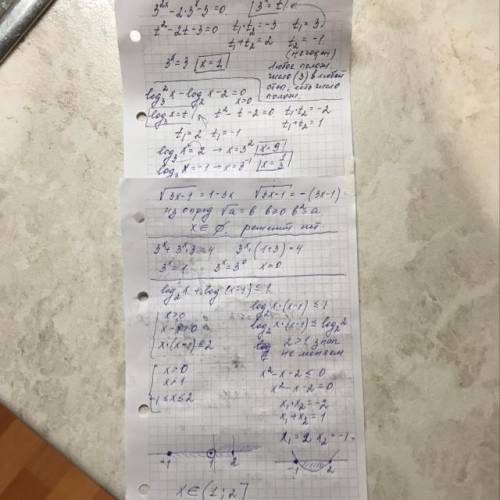 3^2x - 2·3^x - 3 = 0   3^x = t
t² - 2t - 3 = 0   t₁·t₂ = -3   t₁ = 3
t₁ + t₂ = 2   t₂ = -1
3^x = 3   x = 1
Любое полож.
число (3) в любой
полож.
log₃²x - log₃x - 2 = 0
x > 0
log₃x = t   t² - t - 2 = 0   t₁·t₂ = -2
t₁ = 2   t₂ = -1   t₁ + t₂ = 1
log₃x = 2 → x = 3²   x = 9
log₃x = -1 → x = 3⁻¹   x = 1/3
√3x-1 = 1-3x   √3x-1 = -(3x-1)
из опред √a = b   b ≥ 0   b² = a
x ∈ ∅   решений нет.
3^x + 3^x·3 = 4   3^x·(1+3) = 4
3^x = 1   3^x = 3⁰   x = 0
log₂x + log₂(x-1) ≤ 1
x > 0   log₂x·(x-1) ≤ 1
x-1 > 0   log₂x·(x-1) ≤ log₂2
x·(x-1) ≤ 2   2 > 1 знак
не меняем
x > 0   x² - x - 2 ≤ 0
x > 1   x² - x - 2 = 0
-1 ≤ x ≤ 2   x₁·x₂ = -2
x₁ + x₂ = 1
x₁ = 2   x₂ = -1
-1   1   2   -1   2
x ∈ (1; 2]